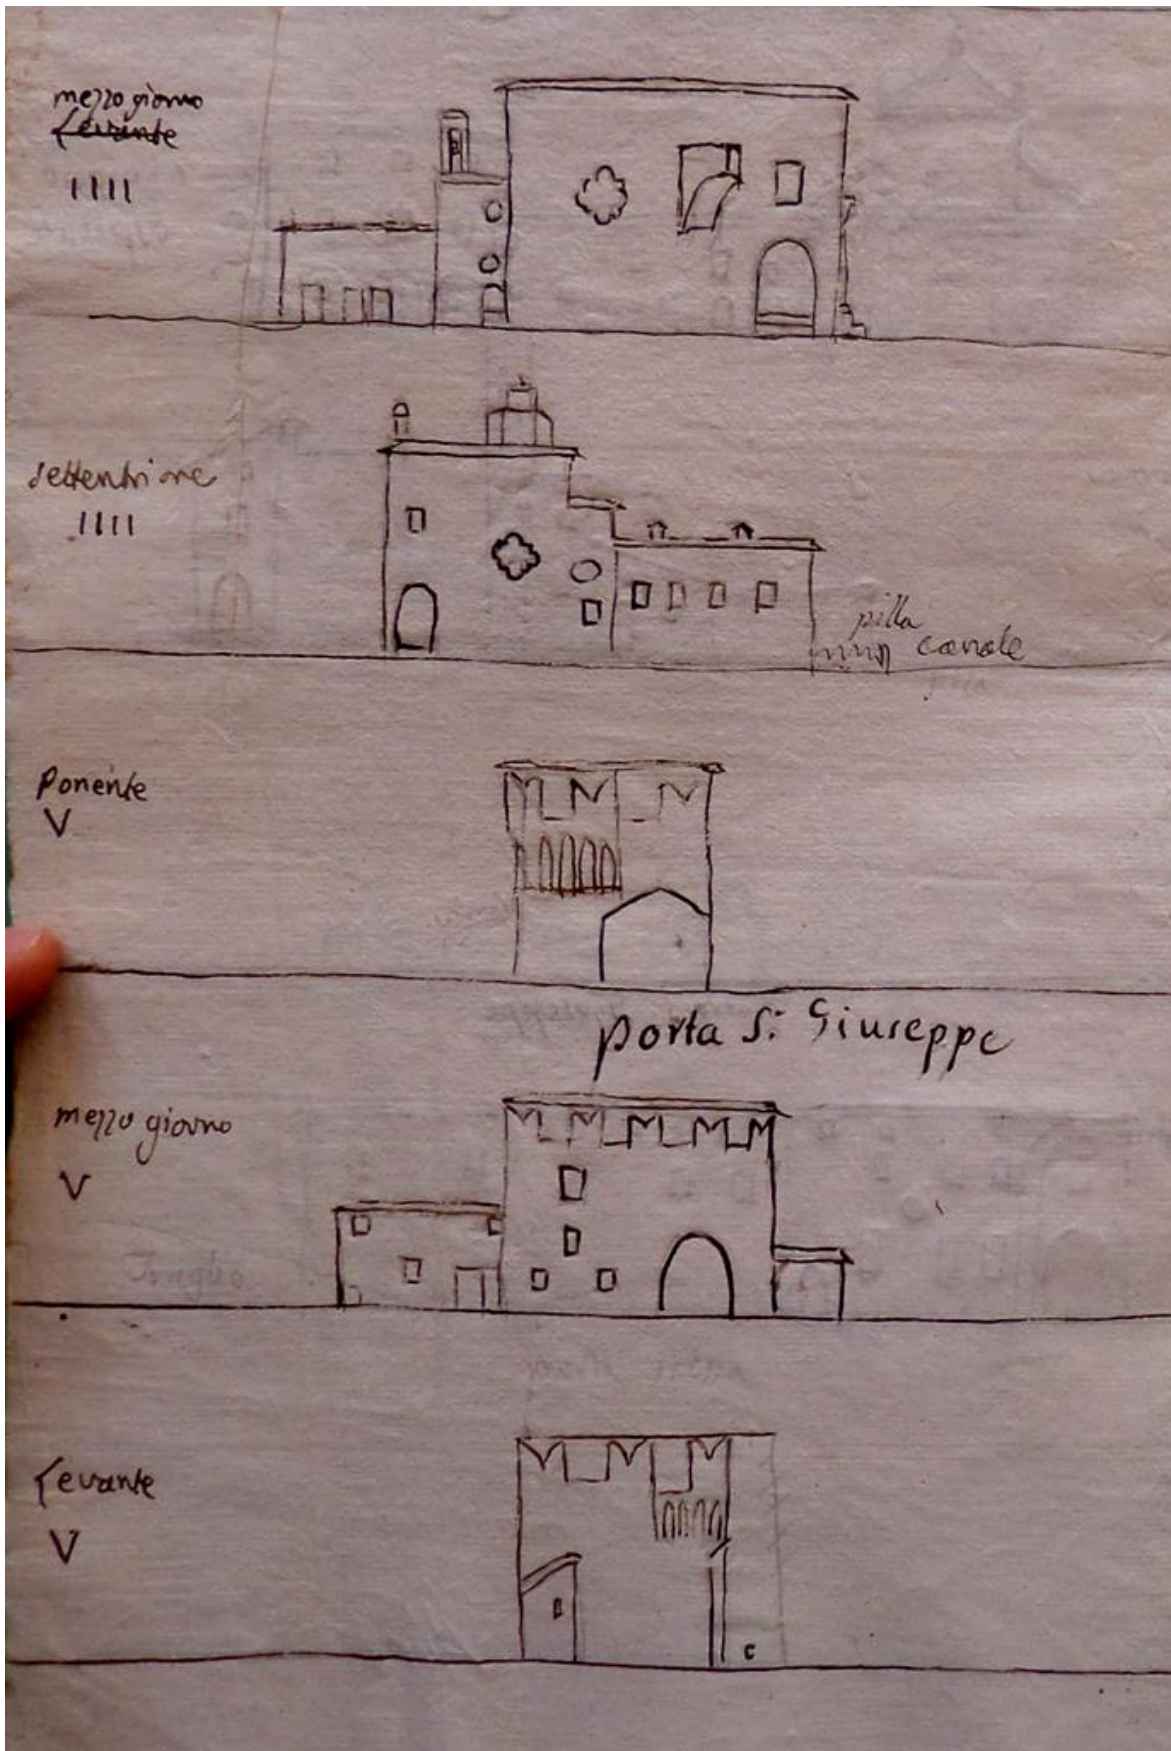 mezzo giorno
Levante
IIII
settentrione
IIII
pilla
canale
Ponente
V
porta S: Giuseppe
mezzo giorno
V
Levante
V
c